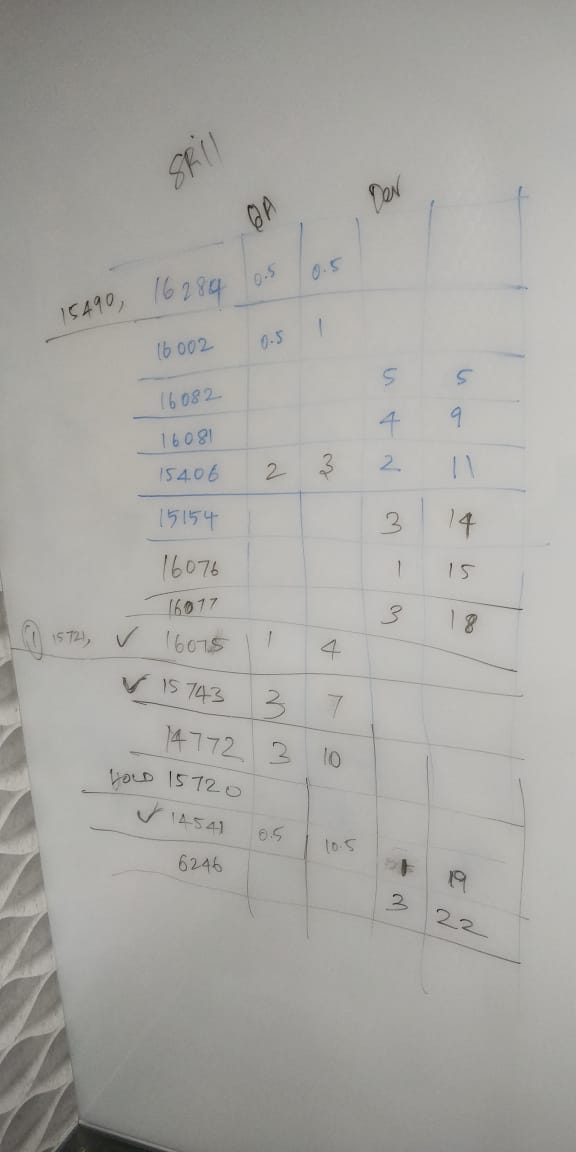 SRill
QA Dev
15490, 16284 0.5 0.5
16002 0.5 1
16082 5 5
16081 4 9
15406 2 3 2 11
15154 3 14
16076 1 15
16077 3 18
1 15721, ✓ 16075 1 4
✓ 15743 3 7
14772 3 10
HOLD 15720
✓ 14541 0.5 10.5 1 19
6246 3 22